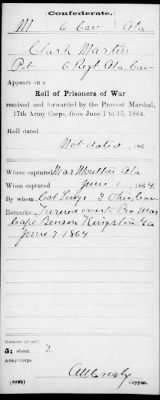 Confederate.
M 6 Cav Ala
Clark Martin
Pvt 6 Regt Ala Cav
Appears on a
Roll of Prisoners of War
received and forwarded by the Provost Marshal,
17th Army Corps, from June 1 to 15, 1864.
Roll dated
Not dated, 186
Where captured Ala
When captured June 1, 1864
By whom Col 3 Ohio Cav
Remarks Turned over to Pro Mar
Capt Benson Kingston Ga
June 7 1864
Number of roll
5; sheet 2
Army Corps.
Copyist.